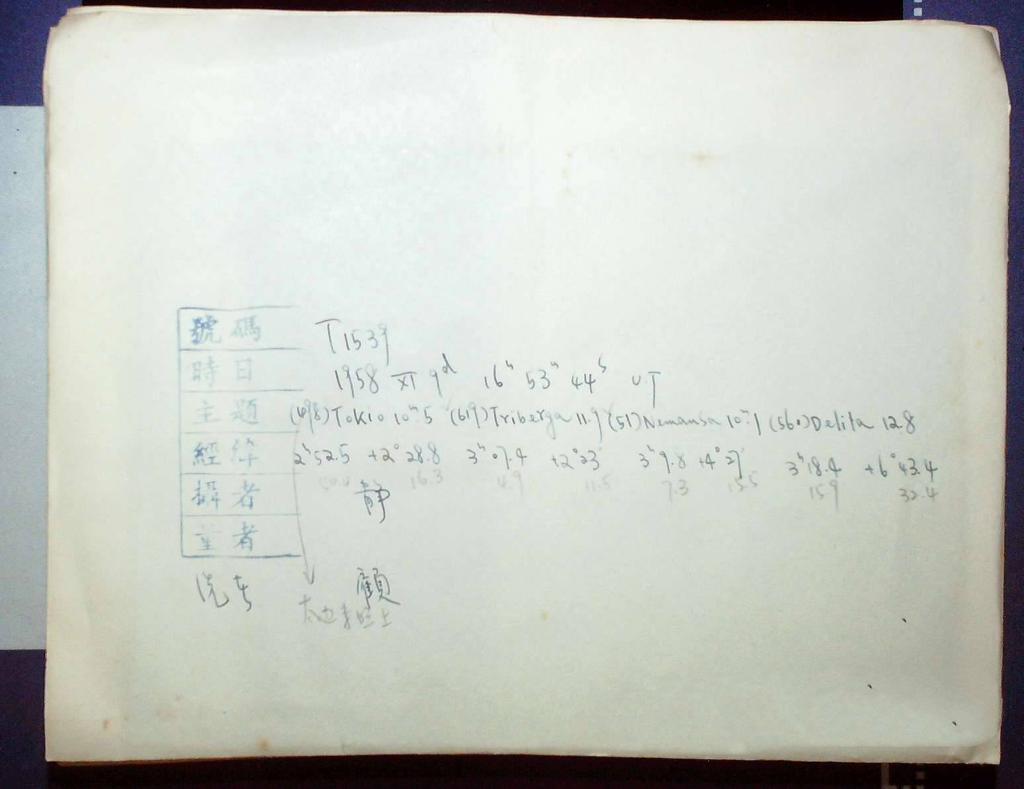 號碼 T1539
時日 1958 XI 9ᵈ 16ʰ 53ᵐ 44ˢ UT
主題 (498)Tokio 10ᵐ5 (619)Triberga 11.9 (51)Nemausa 10ᵐ1 (560)Delila 12.8
經緯 2ʰ52.5 +2°28.8 3ʰ07.4 +2°23' 3ʰ9.8 +4°27' 3ʰ18.4 +6°43.4
50.0 16.3 4.9 11.5 7.3 15.5 15.9 32.4
攝者 静
量者
洗者 顧